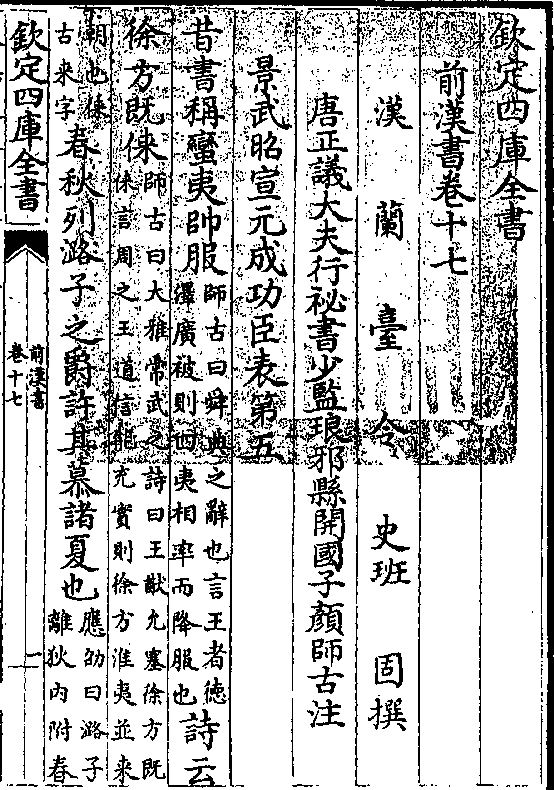 欽定四庫全書
前漢書卷十七
漢蘭臺令史班固撰
唐正議大夫行祕書少監琅邪縣開國子顔師古注
景武昭宣元成功臣表第五
昔書稱蠻夷帥服師古曰舜典之辭也言王者徳澤廣被則四夷相率而降服也詩云
徐方既俫師古曰大雅常武之詩曰王猷允塞徐方既俫言周之王道信能充實則徐方淮夷並来
朝也俫古来字春秋列潞子之爵許其慕諸夏也應劭曰潞子離狄内附春
欽定四庫全書
前漢書
卷十七
一